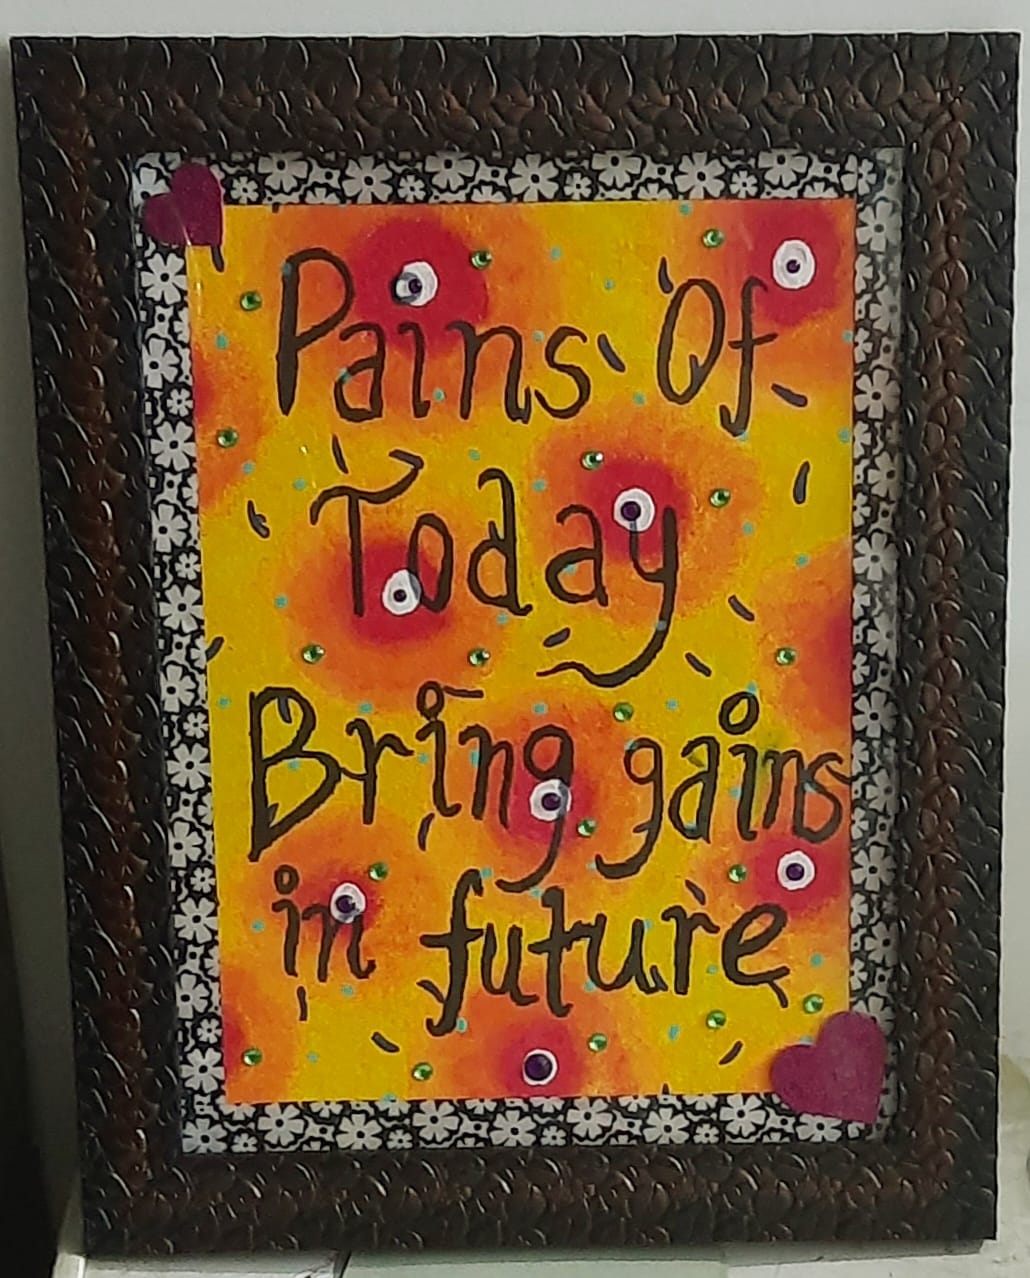 Pains Of
Today
Bring gains
in future